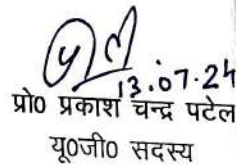 13.07.24
प्रो0 प्रकाश चन्द्र पटेल
यू0जी0 सदस्य